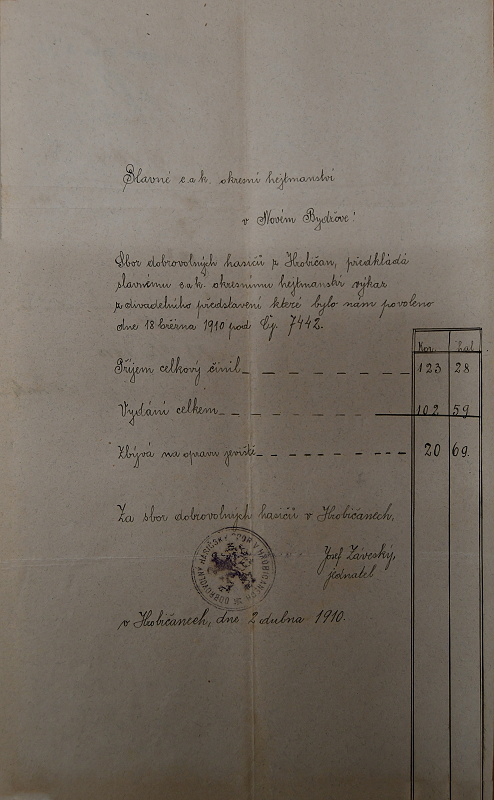 Slavné c. a k. okresní hejtmanství
v Novém Bydžově!
Sbor dobrovolných hasičů z Hrobičan, předkládá
slavnému c. a k. okresnímu hejtmanství výkaz
z divadelního představení které bylo nám povoleno
dne 18 března 1910 pod čj. 7442.
Kor. hal.
Příjem celkový činil 123 28
Vydání celkem 102 59
Zbývá na opravu jeviště 20 69.
Za sbor dobrovolných hasičů v Hrobičanech,
Josef Záveský,
jednatel
DOBROVOLNÝ HASIČSKÝ SBOR V HROBIČANECH
v Hrobičanech, dne 2 dubna 1910.